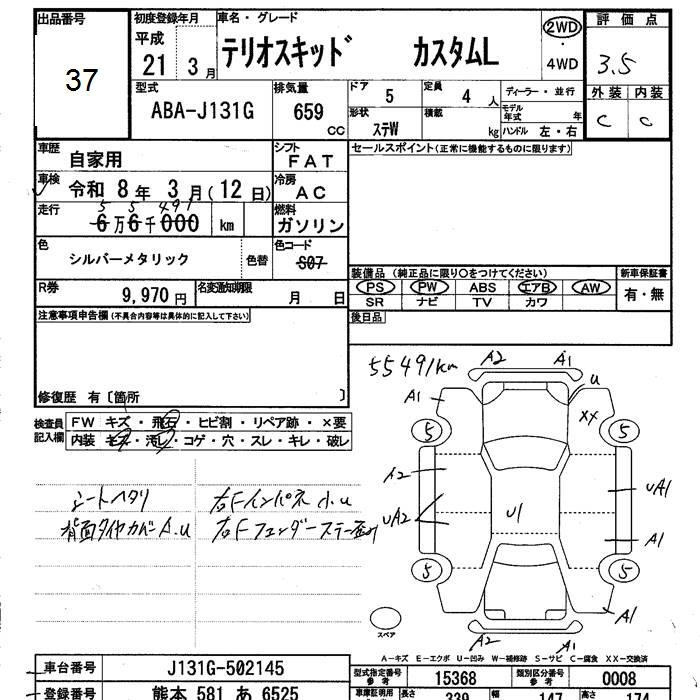 出品番号
37
初度登録年月
平成
21 3月
車名・グレード
テリオスキッド カスタムL
2WD
・
4WD
評価点
3.5
外装 内装
C C
型式
ABA-J131G
排気量
659
cc
ドア
5
定員
4 人
形状
ステW
積載
kg
ディーラー・並行
モデル年式 年
ハンドル 左・右
車歴
自家用
シフト
FAT
車検
令和 8年 3月(12日)
冷房
AC
走行
5 5 491
6万6千000 km
燃料
ガソリン
色
シルバーメタリック
色替
色コード
S07
R券
9,970円
名変通知期限
月 日
セールスポイント(正常に機能するものに限ります)
装備品 (純正品に限り○をつけてください)
新車保証書
PS PW ABS エアB AW
SR ナビ TV カワ
有・無
後日品
注意事項申告欄(不具合内容等は具体的に記入して下さい)
修復歴 有〔箇所 〕
検査員記入欄
FW キズ・飛石・ヒビ割・リペア跡・×要
内装 キズ・汚レ・コゲ・穴・スレ・キレ・破レ
シートヘタリ
背面タイヤカバーA.U
右Fインパネ小.U
右Fフェンダーステー歪み
55491km
A2 A1
A1 U
XX
5 5
A2
UA2
U1
UA1
A1
5 5
A1
スペア
A2 A1
A-キズ E-エクボ U-凹み W-補修跡 S-サビ C-腐食 XX-交換済
車台番号
J131G-502145
登録番号
熊本 581 あ 6525
型式指定番号
参考
15368
類別区分番号
参考
0008
車庫証明用
長さ
339
幅
147
高さ
174